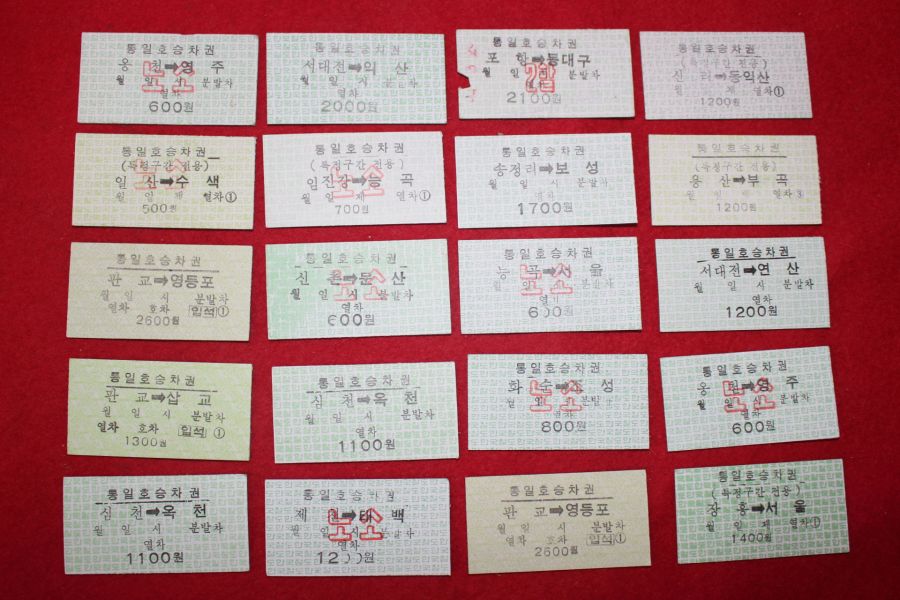 통일호승차권
옹 천➡영 주
노소
월 일 시 분발차
열차
600원
통일호승차권
서대전➡익 산
월 일 시 분발차
열차
2000원
통일호승차권
포 항➡동대구
월 일 시 분발차
열차
2100원
통일호승차권
(특정구간 전용)
신 리➡동익산
월 제 열차①
1200원
통일호승차권
(특정구간 전용)
일 산➡수 색
노소
월 일 제 열차①
500원
통일호승차권
(특정구간 전용)
임진강➡능 곡
노소
월 일 제 열차①
700원
통일호승차권
송정리➡보 성
월 일 시 분발차
열차
1700원
통일호승차권
(특정구간 전용)
용 산➡부 곡
월 일 제 열차③
1200원
통일호승차권
판 교➡영등포
월 일 시 분발차
열차 호차 입석①
2600원
통일호승차권
신 촌➡문 산
노소
월 일 시 분발차
열차
600원
통일호승차권
능 곡➡서 울
노소
월 일 시 분발차
열차
600원
통일호승차권
서대전➡연 산
월 일 시 분발차
열차
1200원
통일호승차권
판 교➡삽 교
월 일 시 분발차
열차 호차 입석①
1300원
통일호승차권
심 천➡옥 천
월 일 시 분발차
열차
1100원
통일호승차권
화 순➡조 성
노소
월 일 시 분발차
열차
800원
통일호승차권
옹 천➡영 주
노소
월 일 시 분발차
열차
600원
통일호승차권
심 천➡옥 천
월 일 시 분발차
열차
1100원
통일호승차권
제 천➡태 백
노소
월 일 시 분발차
열차
1200원
통일호승차권
판 교➡영등포
월 일 시 분발차
열차 호차 입석①
2600원
통일호승차권
(특정구간 전용)
장 흥➡서 울
월 일 제 열차①
1400원